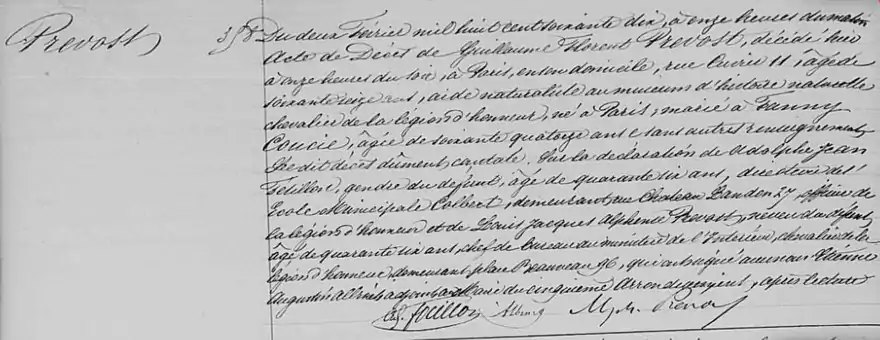 Prevost
358 Du deux Février mil huit cent soixante dix, à onze heures du matin
Acte de Décès de Guillaume Florent Prevost, décédé hier
à onze heures du soir, à Paris, en son domicile, rue Cuvier 11, âgé de
soixante seize ans, aide naturaliste au muséum d'histoire naturelle
chevalier de la légion d'honneur, né à Paris, marié à Fanny
Coucie, âgée de soixante quatorze ans sans autres renseignements
Le dit décès dûment constaté. Sur la déclaration de Adolphe Jean
Fouillon, gendre du défunt, âgé de quarante six ans, directeur de l'
Ecole Municipale Colbert, demeurant rue Chateau Landon 27, officier de
la légion d'honneur et de Louis Jacques Alphonse Prevost, neveu du défunt
âgé de quarante six ans, chef de bureau au ministère de l'Intérieur, chevalier de la
légion d'honneur, demeurant place Beauveau 96, qui ont signé avec nous Etienne
Augustin adjoint au Maire du cinquième Arrondissement, après lecture
Prevost